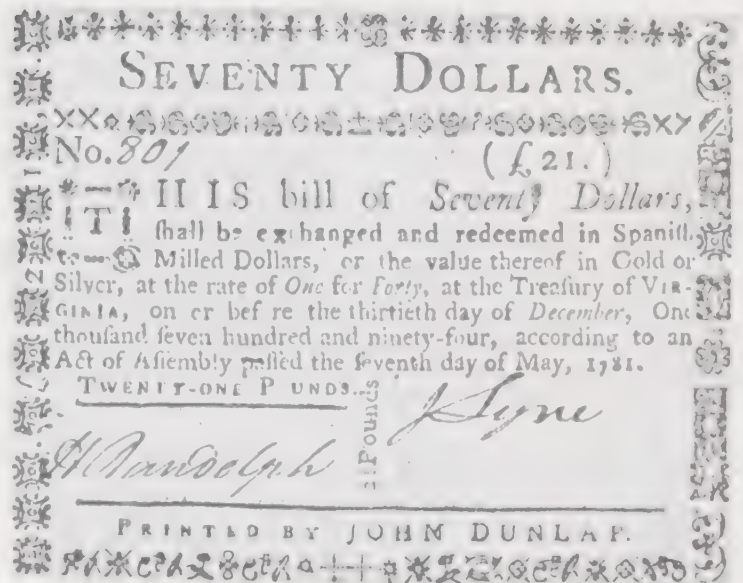 SEVENTY DOLLARS.
No. 801 (£ 21.)
THIS bill of Seventy Dollars,
ſhall be exchanged and redeemed in Spaniſh
Milled Dollars, or the value thereof in Gold or
Silver, at the rate of One for Forty, at the Treaſury of VIR-
GINIA, on or bef re the thirtieth day of December, One
thouſand ſeven hundred and ninety-four, according to an
Act of Aſſembly paſſed the ſeventh day of May, 1781.
TWENTY-ONE P UNDS.
21 Pounds
J Lyne
H Randolph
PRINTED BY JOHN DUNLAP.